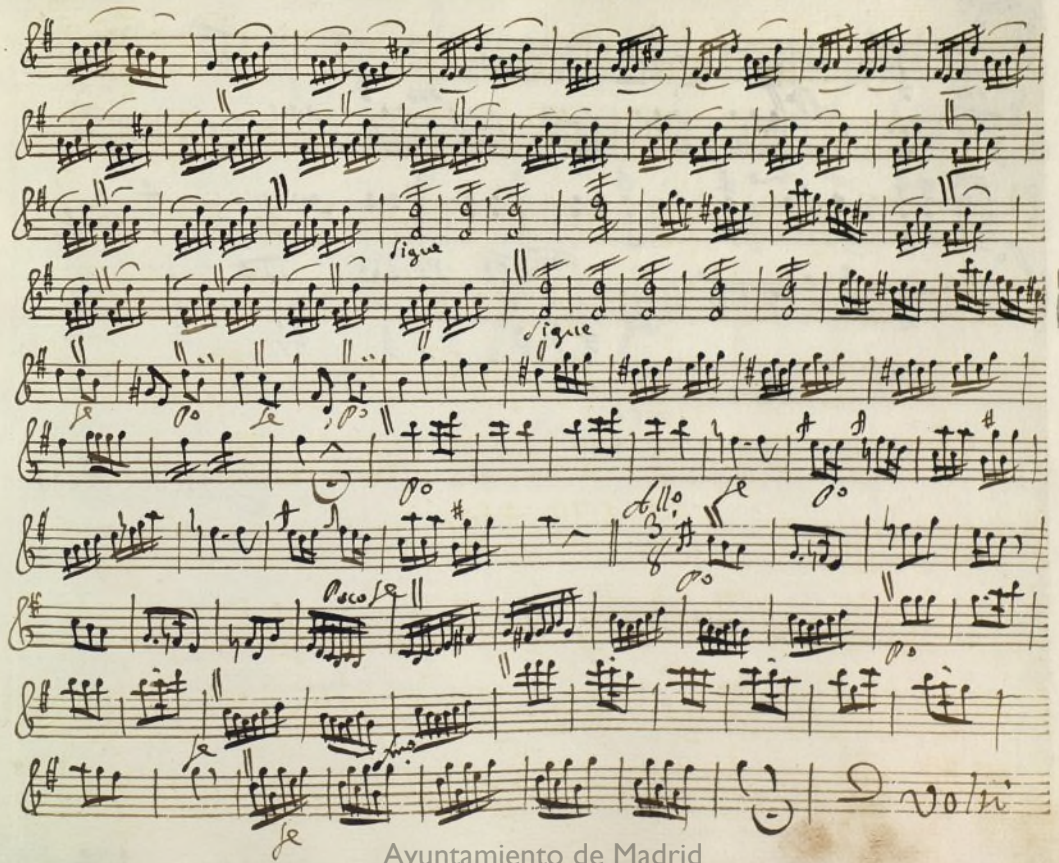 sigue
sigue
fe po fe po
po fe po
All.o 3/8 fe po
Poco fe po
fe fmo
fe Volti
Ayuntamiento de Madrid